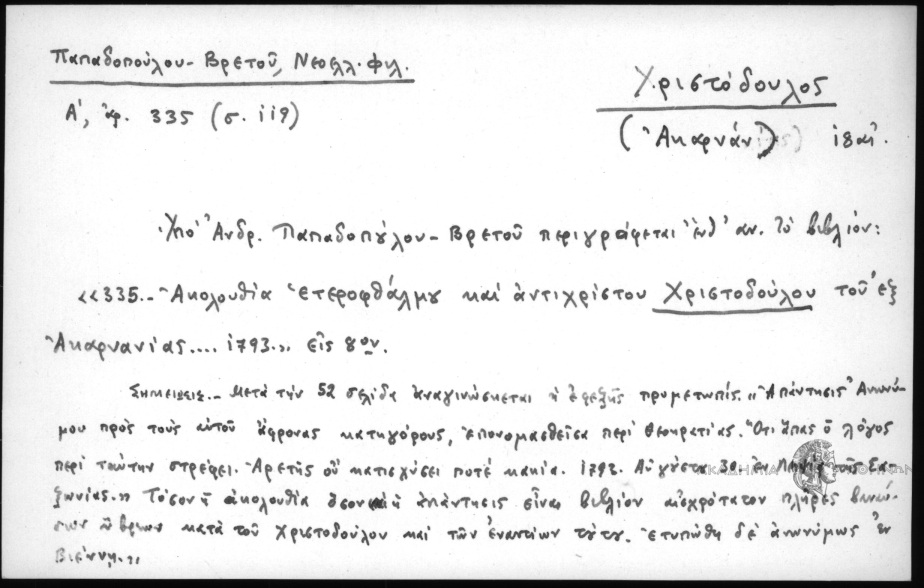 Παπαδοπούλου-Βρετοῦ, Νεοελλ. Φιλ.
Α', ἀρ. 335 (σ. 119)
Χριστόδουλος
(Ἀκαρνάν) 18 αἰ.
Ὑπὸ Ἀνδρ. Παπαδοπούλου-Βρετοῦ περιγράφεται ἐνθ' ἀν. τὸ βιβλίον:
«335.- Ἀκολουθία ἑτεροφθάλμου καὶ ἀντιχρίστου Χριστοδούλου τοῦ ἐξ
Ἀκαρνανίας.... 1793.» Εἰς 8ον.
Σημείωσις.- Μετὰ τὴν 52 σελίδα ἀναγινώσκεται ἡ ἐφεξῆς προμετωπίς. «Ἀπάντησις Ἀνωνύ-
μου πρὸς τοὺς αὐτοῦ ἄφρονας κατηγόρους, ἐπονομασθεῖσα περὶ Θεοκρατίας. Ὅτι ἅπας ὁ λόγος
περὶ ταύτην στρέφει. Ἀρετῆς οὐ κατισχύσει ποτὲ κακία. 1793. Αὐγούστου 30. ἐν τῆς Σα-
ξωνίας.» Τόσον ἡ ἀκολουθία ὅσον καὶ ἡ ἀπάντησις εἶναι βιβλίον αἰσχρότατον πλῆρες
ὕβρεων κατὰ τοῦ Χριστοδούλου καὶ τῶν ἐναντίων τούτου. Ἐτυπώθη δὲ ἀνωνύμως ἐν
Βιέννῃ.»